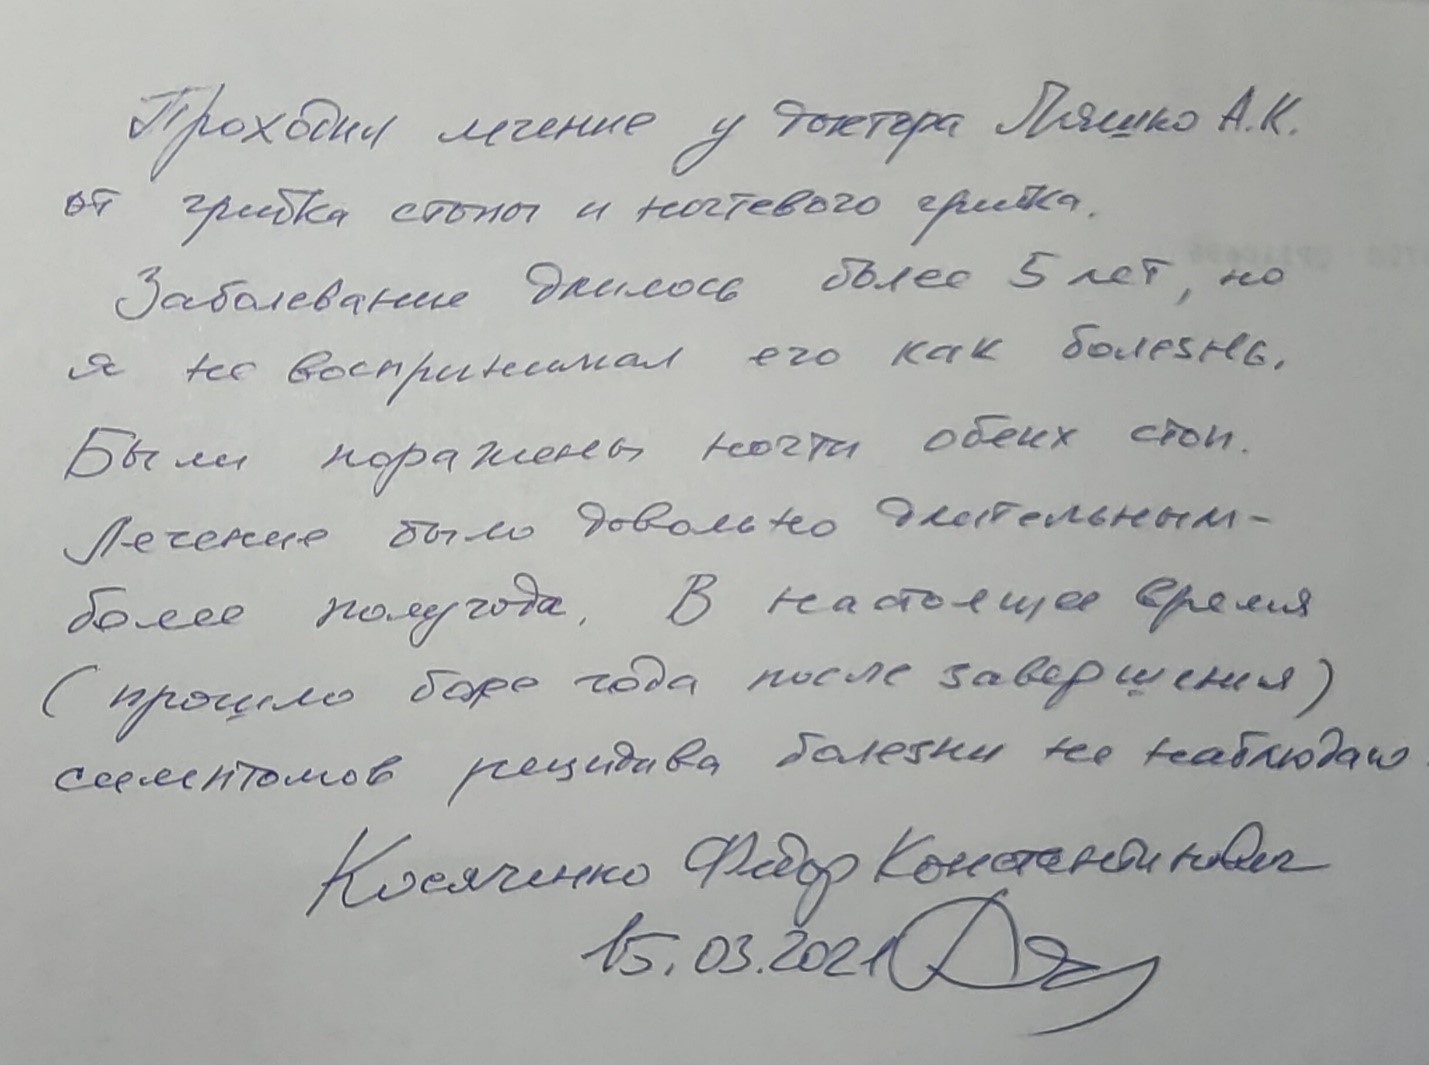 Проходил лечение у доктора Ляшко А.К.
от грибка стопы и ногтевого грибка.
Заболевание длилось более 5 лет, но
я не воспринимал его как болезнь.
Были поражены ногти обеих стоп.
Лечение было довольно длительным-
более полугода. В настоящее время
(прошло более года после завершения)
симптомов рецидива болезни не наблюдаю.
Косяченко Фёдор Константинович
15.03.2021